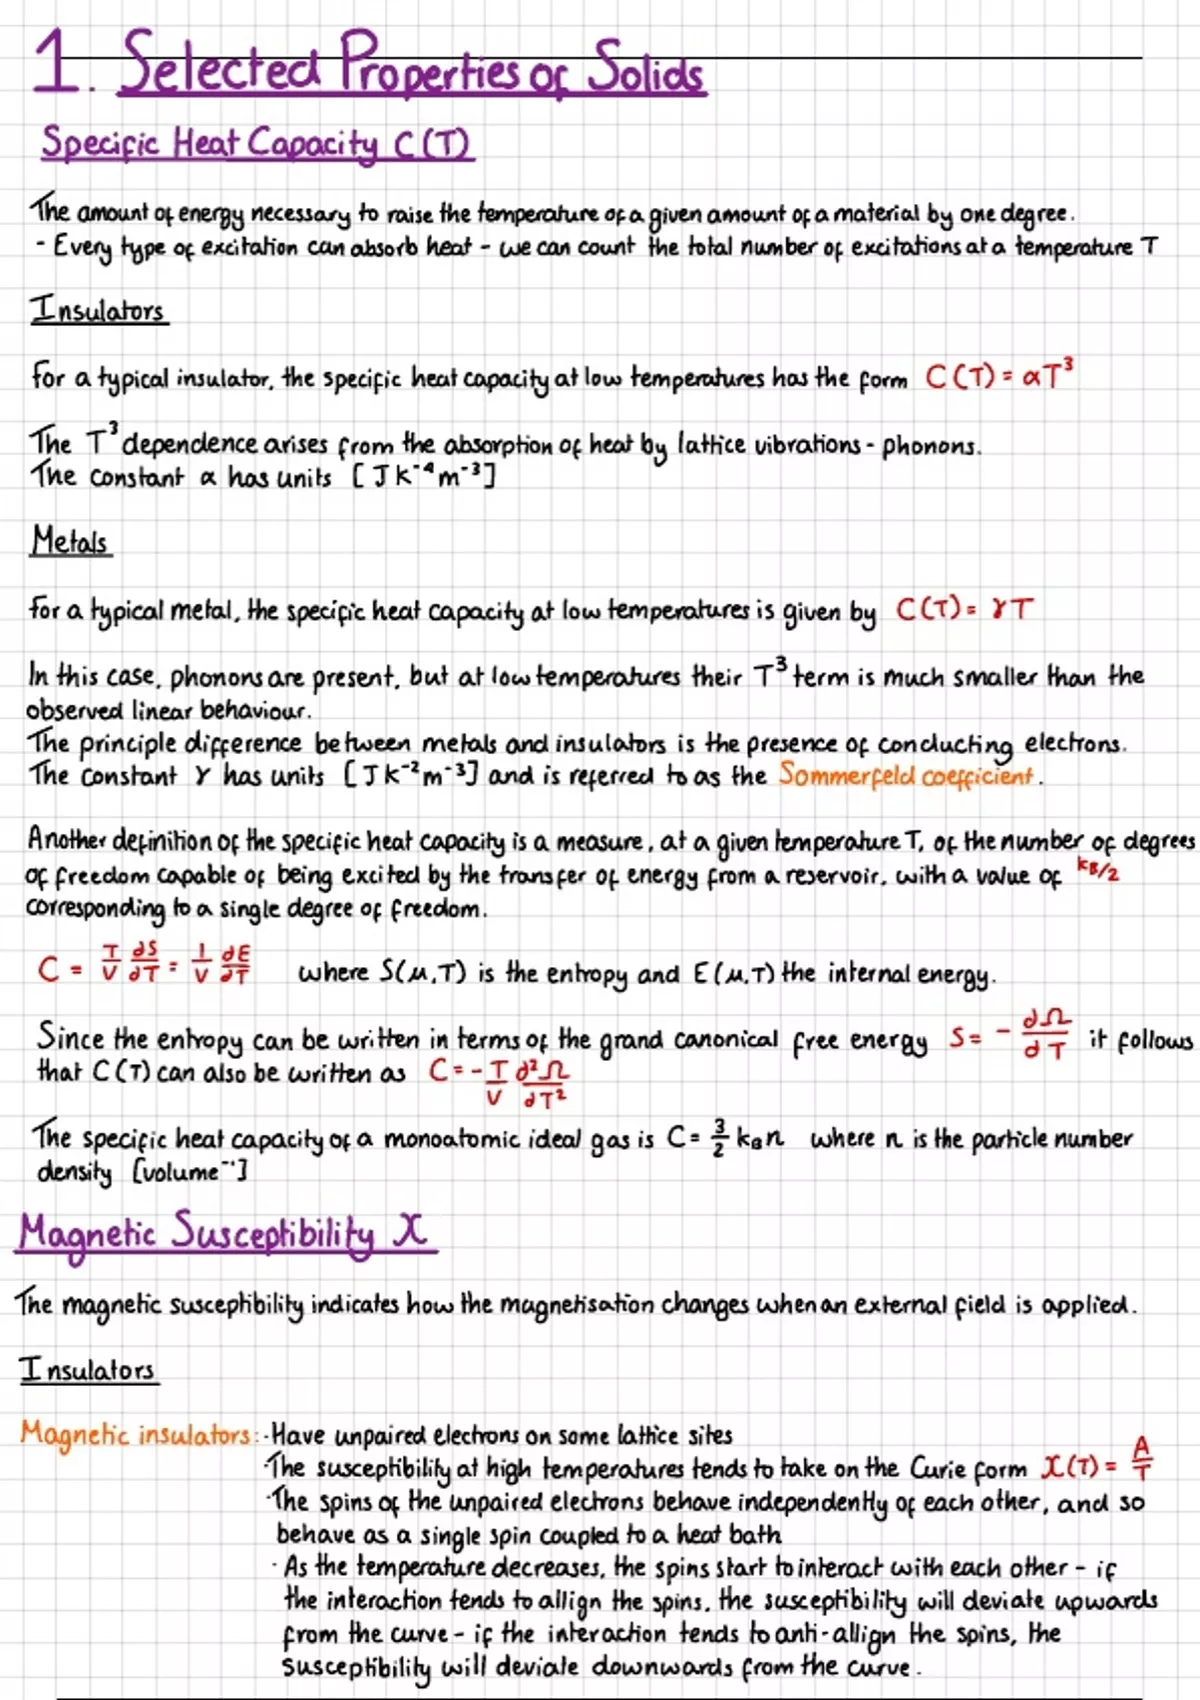 1. Selected Properties of Solids
Specific Heat Capacity C(T)
The amount of energy necessary to raise the temperature of a given amount of a material by one degree.
- Every type of excitation can absorb heat - we can count the total number of excitations at a temperature T
Insulators
For a typical insulator, the specific heat capacity at low temperatures has the form C(T) = αT³
The T³ dependence arises from the absorption of heat by lattice vibrations - phonons.
The constant α has units [JK⁻⁴m⁻³]
Metals
For a typical metal, the specific heat capacity at low temperatures is given by C(T) = γT
In this case, phonons are present, but at low temperatures their T³ term is much smaller than the
observed linear behaviour.
The principle difference between metals and insulators is the presence of conducting electrons.
The constant γ has units [JK⁻²m⁻³] and is referred to as the Sommerfeld coefficient.
Another definition of the specific heat capacity is a measure, at a given temperature T, of the number of degrees
of freedom capable of being excited by the transfer of energy from a reservoir, with a value of kB/2
corresponding to a single degree of freedom.
C = T/V ∂S/∂T = 1/V ∂E/∂T where S(μ,T) is the entropy and E(μ,T) the internal energy.
Since the entropy can be written in terms of the grand canonical free energy S = - ∂Ω/∂T it follows
that C(T) can also be written as C = - T/V ∂²Ω/∂T²
The specific heat capacity of a monoatomic ideal gas is C = 3/2 kBn where n is the particle number
density [volume⁻¹]
Magnetic Susceptibility χ
The magnetic susceptibility indicates how the magnetisation changes when an external field is applied.
Insulators
Magnetic insulators: · Have unpaired electrons on some lattice sites
· The susceptibility at high temperatures tends to take on the Curie form χ(T) = A/T
· The spins of the unpaired electrons behave independently of each other, and so
behave as a single spin coupled to a heat bath
· As the temperature decreases, the spins start to interact with each other - if
the interaction tends to allign the spins, the susceptibility will deviate upwards
from the curve - if the interaction tends to anti-allign the spins, the
susceptibility will deviate downwards from the curve.